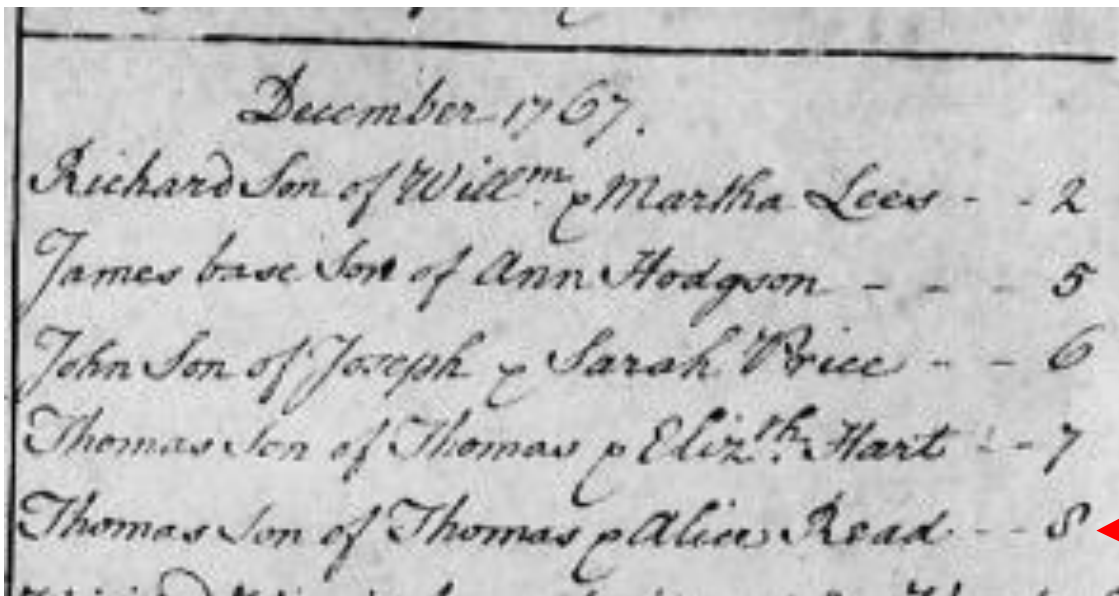 December 1767.
Richard Son of Willm. & Martha Lees - - 2
James base Son of Ann Hodgson - - - - 5
John Son of Joseph & Sarah Price - - 6
Thomas Son of Thomas & Elizth. Hart - - 7
Thomas Son of Thomas & Alice Read - - 8